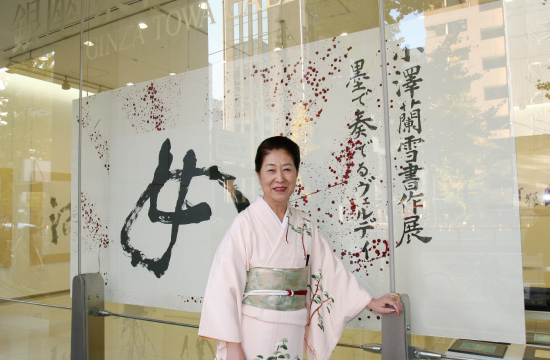 銀座
GINZA TOWA
小澤蘭雪書作展
墨で奏でるヴェルディ